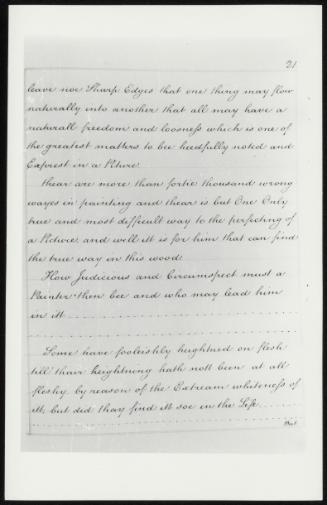 21
leave noe Sharp Edges that one thing may flow
naturally into another that all may have a
naturall freedom and loosness which is one of
the greatest matters to bee heedfully noted and
Exprest in a Picture
thear are more than fortie thousand wrong
wayes in painting and thear is but One Only
true and most deffecult way to the perfecting of
a Picture and well itt is for him that can find
the true way in this wood
How Judicious and Circumspect must a
Painter then bee and who may lead him
in itt
Some have fooleishly heightned on flesh
till thair heightning hath nott been at all
fleshy by reason of the Extream whiteness of
itt, but did thay find itt soe in the Life